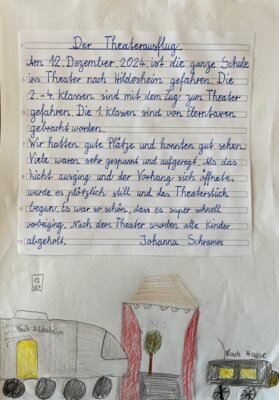 Der Theaterausflug
Am 12. Dezember 2024 ist die ganze Schule
ins Theater nach Hildesheim gefahren. Die
2.-4. Klassen sind mit dem Zug zum Theater
gefahren. Die 1. Klassen sind von Elterntaxen
gebracht worden.
Wir hatten gute Plätze und konnten gut sehen.
Viele waren sehr gespannt und aufgeregt. Als das
Licht ausging und der Vorhang sich öffnete,
wurde es plötzlich still und das Theaterstück
begann. Es war so schön, dass es super schnell
vorbeiging. Nach dem Theater wurden alle Kinder
abgeholt. Johanna Schramm
12
Nach Hildesheim
Nach Hause